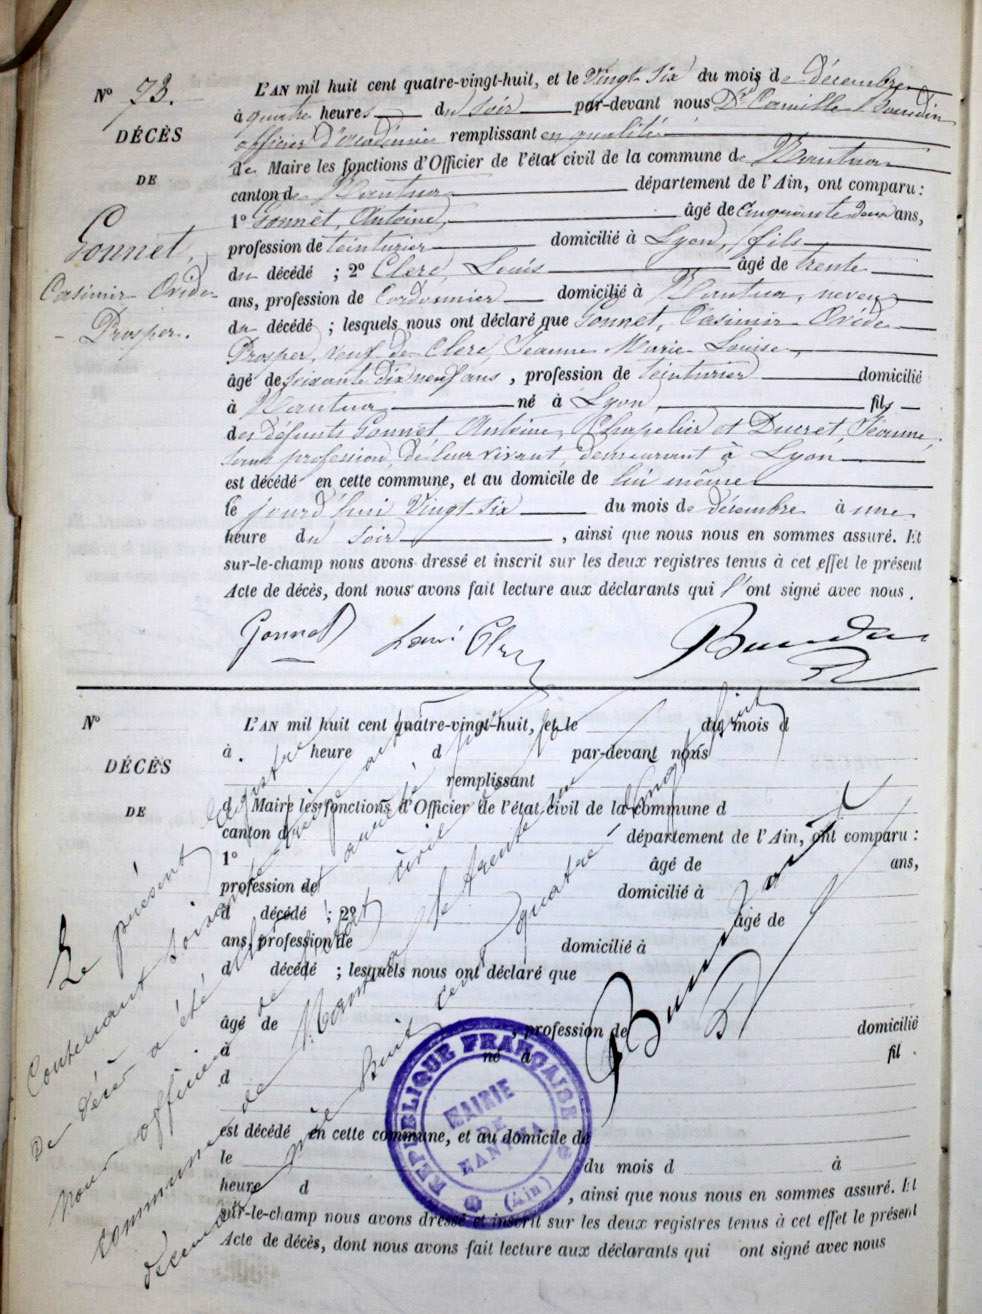 N° 73.
DÉCÈS
DE
Gonnet,
Casimir Ovide
Prosper.
L'AN mil huit cent quatre-vingt-huit, et le Vingt Six du mois de décembre
à quatre heures du soir par-devant nous Dr Camille Baudin
officier d'académie remplissant en qualité
de Maire les fonctions d'Officier de l'état civil de la commune de Nantua
canton de Nantua département de l'Ain, ont comparu :
1° Gonnet, Antoine, âgé de Cinquante deux ans,
profession de teinturier domicilié à Lyon, fils
du décédé ; 2° Clerc, Louis âgé de trente
ans, profession de Cordonnier domicilié à Nantua, neveu
du décédé ; lesquels nous ont déclaré que Gonnet, Casimir Ovide
Prosper, veuf de Clerc, Jeanne Marie Louise,
âgé de soixante dix neuf ans, profession de teinturier domicilié
à Nantua né à Lyon, fils
des défunts Gonnet Antoine, Chapelier et Ducret, Jeanne,
sans profession, de leur vivant, demeurant à Lyon
est décédé en cette commune, et au domicile de lui même
le jourd'hui Vingt Six du mois de décembre à une
heure du soir, ainsi que nous nous en sommes assuré. Et
sur-le-champ nous avons dressé et inscrit sur les deux registres tenus à cet effet le présent
Acte de décès, dont nous avons fait lecture aux déclarants qui l'ont signé avec nous.
Gonnet Louis Clerc Baudin
N°
DÉCÈS
DE
L'AN mil huit cent quatre-vingt-huit, et le du mois d
à heure d par-devant nous
remplissant
d Maire les fonctions d'Officier de l'état civil de la commune d
canton d département de l'Ain, ont comparu :
1° âgé de ans,
profession de domicilié à
d décédé ; 2° âgé de
ans, profession de domicilié à
d décédé ; lesquels nous ont déclaré que
âgé de , profession de domicilié
à né à fil
d
est décédé en cette commune, et au domicile de
le du mois d à
heure d , ainsi que nous nous en sommes assuré. Et
sur-le-champ nous avons dressé et inscrit sur les deux registres tenus à cet effet le présent
Acte de décès, dont nous avons fait lecture aux déclarants qui ont signé avec nous
Le présent registre
Contenant soixante treize actes
De décès a été clos et arrêté par
nous officier de l'état civil de la
commune de Nantua le trente un
décembre mil huit cent quatre vingt huit
Baudin
RÉPUBLIQUE FRANÇAISE
MAIRIE
DE
NANTUA
(Ain)